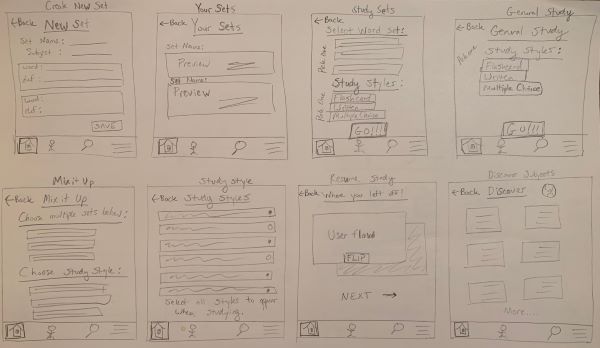 Create New Set
← Back New Set
Set Name:
Subject:
word:
def:
word:
def:
SAVE
Your Sets
← Back
Your Sets
Set Name:
Preview
Set Name:
Preview
Study Sets
← Back
Select Word Set:
Pick One
Study Styles:
Pick One
Flashcard
Written
Multiple Choice
GO!!!
General Study
← Back
General Study
Pick one
Study Styles:
Flashcard
Written
Multiple Choice
GO!!!
Mix it Up
← Back Mix it Up
Choose multiple sets below:
Choose Study Style:
Study Style
← Back Study Styles
Select all styles to appear
when studying.
Resume Study
← Back Where you left off!
FLIP
NEXT →
Discover Subjects
← Back Discover
More....